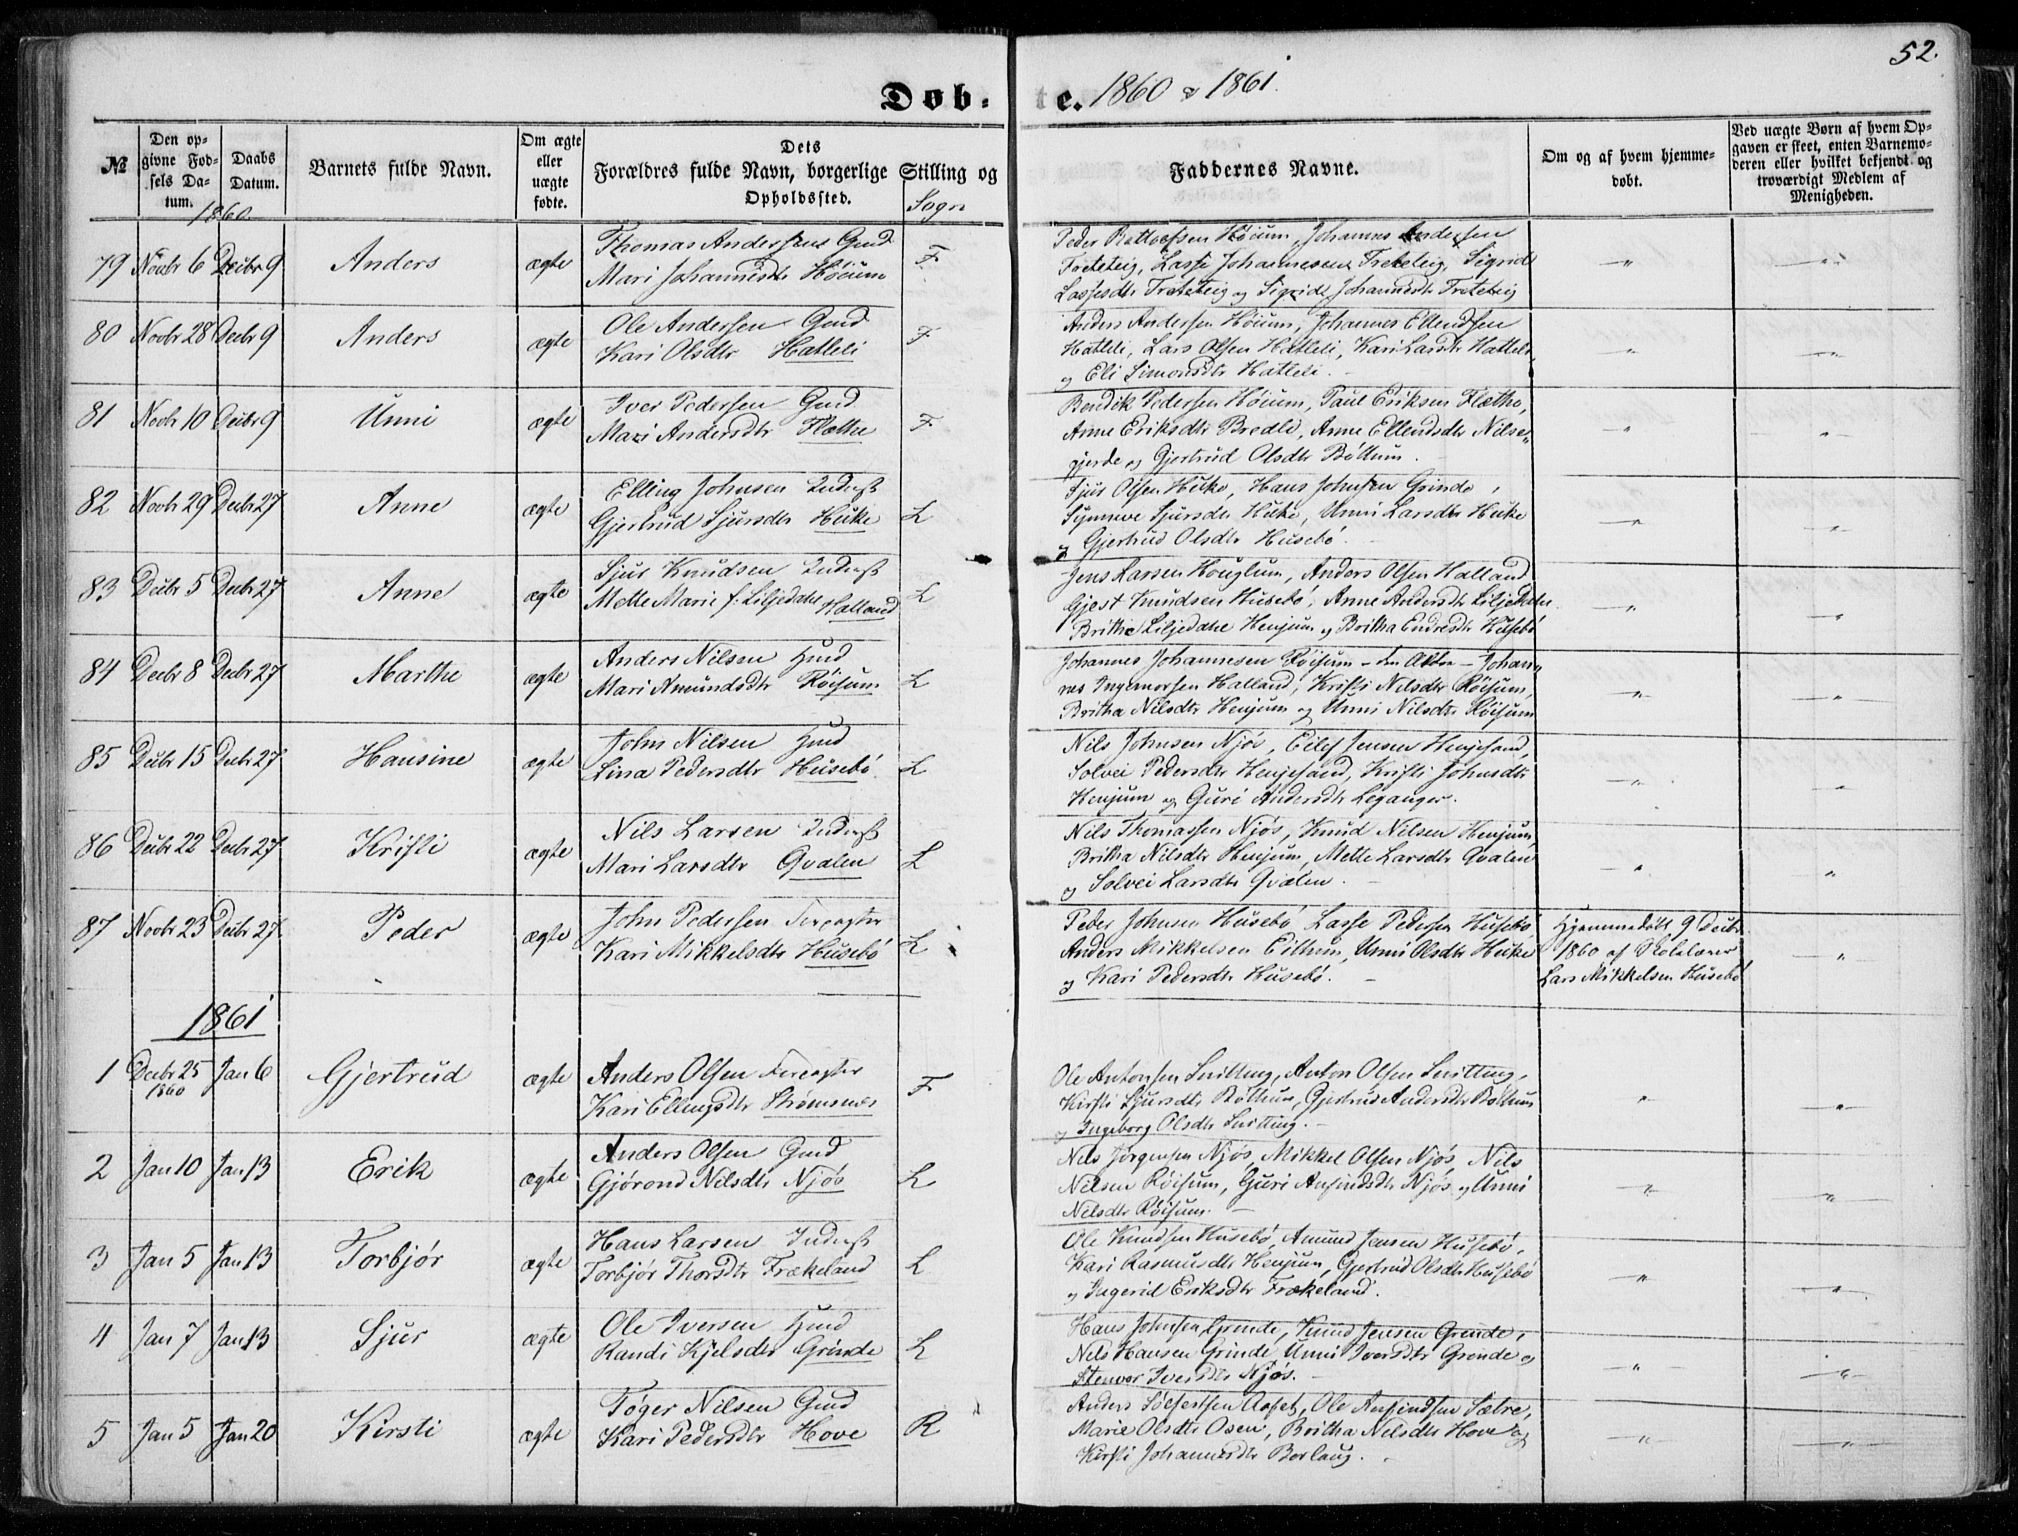 52.
Døb-te. 1860 & 1861.
№
Den opgivne Fødsels Datum.
Daabs Datum.
Barnets fulde Navn.
Om ægte eller uægte fødte.
Dets Forældres fulde Navn, borgerlige Stilling og Opholdssted.
Sogn
Faddernes Navne.
Om og af hvem hjemmedøbt.
Ved uægte Børn af hvem Opgaven er skeet, enten Barnemoderen eller hvilket bekjendt og troværdigt Medlem af Menigheden.
1860
79 Novbr 6 Decbr 9 Anders ægte Thomas Andersens Gmd
Mari Johannesdtr Höium F
Peder Johannes Andersen
Freteteig, Lasse Johannesen Freteteig, Sigrid
Lassesdtr Freteteig og Sigrid Johannesdtr Freteteig
80 Novbr 28 Decbr 9 Anders ægte Ole Andersen Gmd
Kari Olsdtr Hatleli F
Anders Andersen Höium, Johannes Ellendsen
Hatleli, Lars Olsen Hatleli, Kari Larsdtr Hatleli
og Eli Simonsdtr Hatleli.
81 Novbr 10 Decbr 9 Unni ægte Iver Pedersen Gmd
Mari Andersdtr Flæthe F
Bendik Pedersen Höium, Paul Eriksen Flæthe,
Anne Eriksdtr Bredli, Anne Ellendsdtr Nilse-
gjerde og Gjertrud Olsdtr Böthun.
82 Novbr 29 Decbr 27 Anne ægte Elling Johnsen Inderst
Gjertrud Sjursdtr Huke L
Sjur Olsen Huke, Hans Johnsen Grinde,
Synneve Sjursdtr Huke, Unni Larsdtr Huke
og Gjertrud Olsdtr Husebö.
83 Decbr 5 Decbr 27 Anne ægte Sjur Knudsen Inderst
Mette Marie f. Liljedahl Halland L
Jens Larsen Houglum, Anders Olsen Halland
Gjest Knudsen Husebö, Anne Andersdtr
Britha Liljedahl Henjum og Britha Endresdtr Husebö
84 Decbr 8 Decbr 27 Marthe ægte Anders Nilsen Hmd
Mari Amundsdtr Röisum L
Johannes Johannesen Röisum - Johan-
nes Ingemorsen Halland, Kristi Nilsdtr Röisum,
Britha Nilsdtr Henjum og Unni Nilsdtr Röisum
85 Decbr 15 Decbr 27 Hansine ægte John Nilsen Hmd
Lina Pedersdtr Husebö. L
Nils Johnsen Njös, Eilef Jensen Henjesand,
Solvei Pedersdtr Henjesand, Kristi Johnsdtr
Henjum og Guri Andersdtr Leganger.
86 Decbr 22 Decbr 27 Kristi ægte Nils Larsen Inderst
Mari Larsdtr Qvalen L
Nils Thomassen Njös, Knud Nilsen Henjum,
Britha Nilsdtr Henjum, Mette Larsdtr Qvalen
og Solvei Larsdtr Qvalen.
87 Novbr 23 Decbr 27 Peder ægte John Pedersen
Kari Mikkelsdtr Husebö L
Peder Johnsen Husebö Lasse Pedersen Husebö,
Anders Mikkelsen Eithun, Unni Olsdtr Huke
og Kari Pedersdtr Husebö.
Hjemmedöbt 9 Decbr
1860 af Skolelærer
Lars Mikkelsen Husebö
1861
1 Decbr 25 1860 Jan 6 Gjertrud ægte Anders Olsen
Kari Ellingsdtr Strömsnæs F
Ole Antonsen Snitting, Anton Olsen Snitting,
Kirsti Sjursdtr Böthun, Gjertrud Andersdtr Böthun
og Ingeborg Olsdtr Snitting.
2 Jan 10 Jan 13 Erik ægte Anders Olsen Gmd
Gjörond Nilsdtr Njös L
Nils Jörgensen Njös, Mikkel Olsen Njös, Nils
Nilsen Röisum, Guri Anfindsdtr Njös og Unni
Nilsdtr Röisum.
3 Jan 5 Jan 13 Torbjör ægte Hans Larsen Inderst
Torbjör Thorsdtr Frækeland L
Ole Knudsen Husebö Amund Jensen Husebö,
Kari Rasmusdtr Henjum, Gjertrud Olsdtr Husebö
og Ingerid Eriksdtr Frækeland.
4 Jan 7 Jan 13 Sjur ægte Ole Iversen Hmd
Randi Kjelsdtr Grinde L
Hans Johnsen Grinde, Knud Jensen Grinde,
Nils Hansen Grinde Unni Iversdtr Grinde og
Stenvor Iversdtr Njös.
5 Jan 5 Jan 20 Kirsti ægte Töger Nilsen Gmd
Kari Pedersdtr Hove R
Anders Ole Anfindsen Sætre,
Marie Olsdtr Osen, Britha Nilsdtr Hove og
Kirsti Johannesdtr Borlaug.